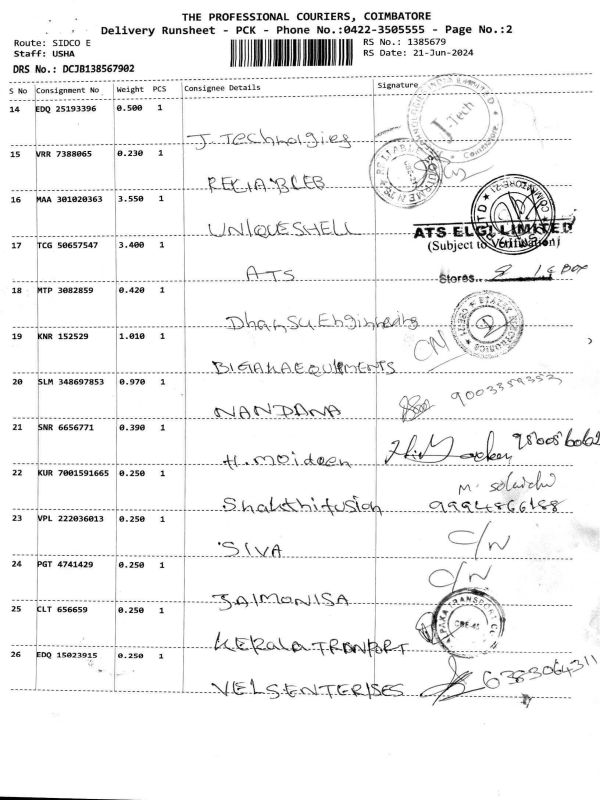 THE PROFESSIONAL COURIERS, COIMBATORE
Delivery Runsheet - PCK - Phone No.:0422-3505555 - Page No.:2
Route: SIDCO E RS No.: 1385679
Staff: USHA RS Date: 21-Jun-2024
DRS No.: DCJB138567902
S No Consignment No Weight PCS Consignee Details Signature
14 EDQ 25193396 0.500 1
J. Technolgies J Tech Coimbatore
15 VRR 7388065 0.230 1
RELIABLEB
16 MAA 301020363 3.550 1
UNIQUESHELL
ATS ELGI LIMITED
17 TCG 50657547 3.400 1 (Subject to Verification)
ATS Stores..
18 MTP 3082859 0.420 1
Dhansu Enginnering
19 KNR 152529 1.010 1
EQUIPMENTS
20 SLM 348697853 0.970 1
NANDANA 9003359353
21 SNR 6656771 0.390 1
H. Moideen
22 KUR 7001591665 0.250 1
Shakthifusion 9994866188
23 VPL 222036013 0.250 1
SIVA C/N
24 PGT 4741429 0.250 1 C/N
JAIMONISA
25 CLT 656659 0.250 1
KERALA TRANPORT
26 EDQ 15023915 0.250 1
VELSENTERISES 6383064311